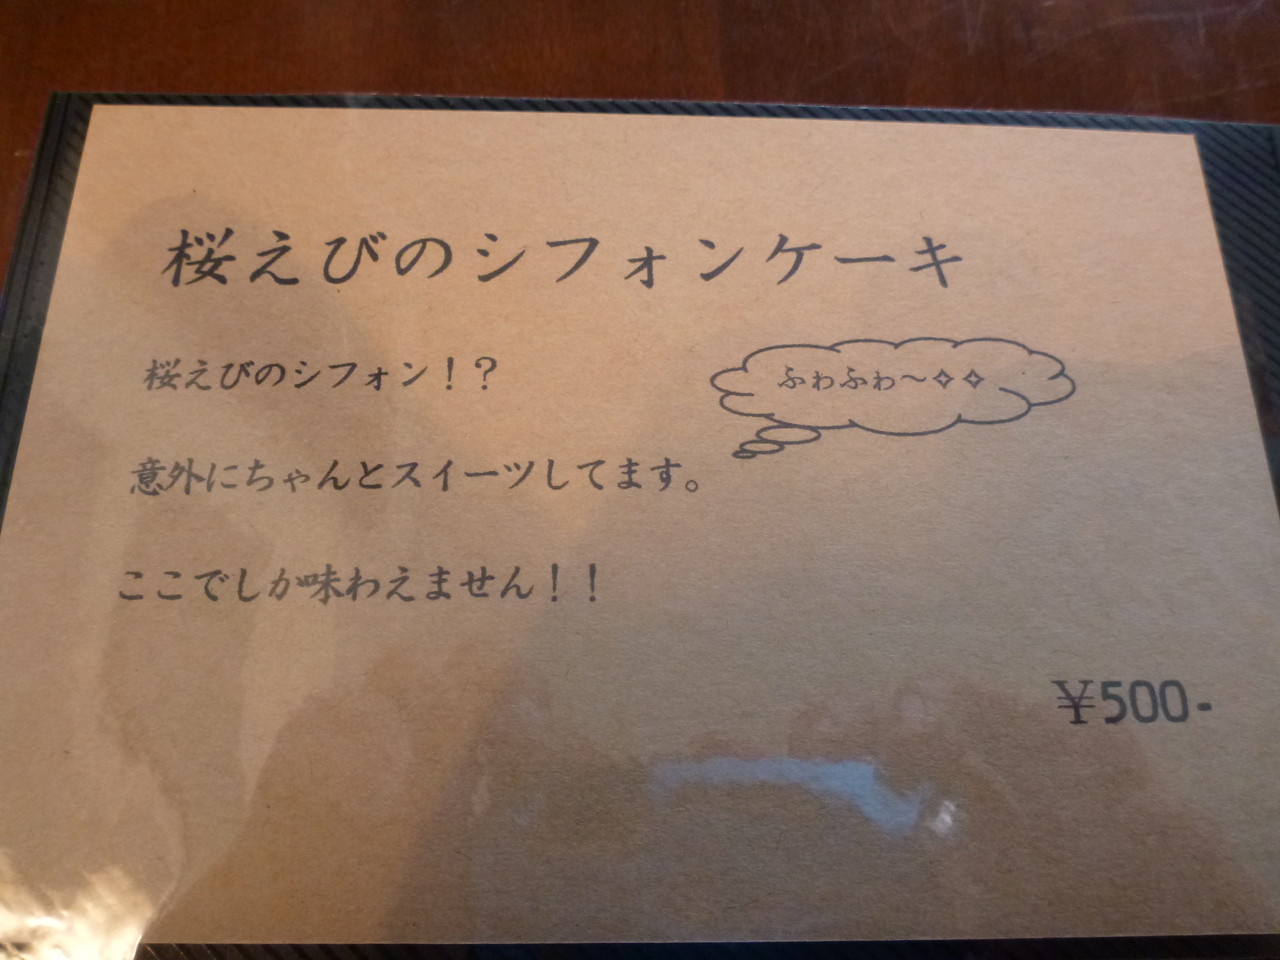 桜えびのシフォンケーキ
桜えびのシフォン！？
ふわふわ～✧✧
意外にちゃんとスイーツしてます。
ここでしか味わえません！！
￥500-